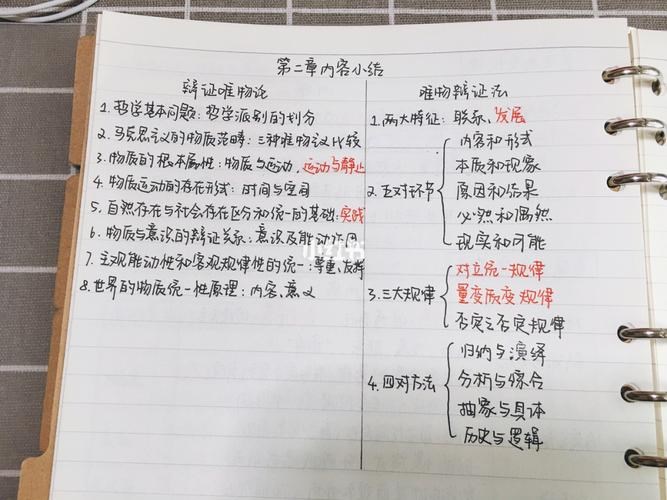 第二章内容小结
辩证唯物论
1. 哲学基本问题：哲学派别的划分
2. 马克思主义的物质范畴：三种唯物主义比较
3. 物质的根本属性：物质与运动，运动与静止
4. 物质运动的存在形式：时间与空间
5. 自然存在与社会存在区分和统一的基础：实践
6. 物质与意识的辩证关系：意识及能动作用
7. 主观能动性和客观规律性的统一：尊重、发挥
8. 世界的物质统一性原理：内容、意义
唯物辩证法
1. 两大特征：联系、发展
2. 五对环节
内容和形式
本质和现象
原因和结果
必然和偶然
现实和可能
3. 三大规律
对立统一规律
量变质变规律
否定之否定规律
4. 四对方法
归纳与演绎
分析与综合
抽象与具体
历史与逻辑
小红书